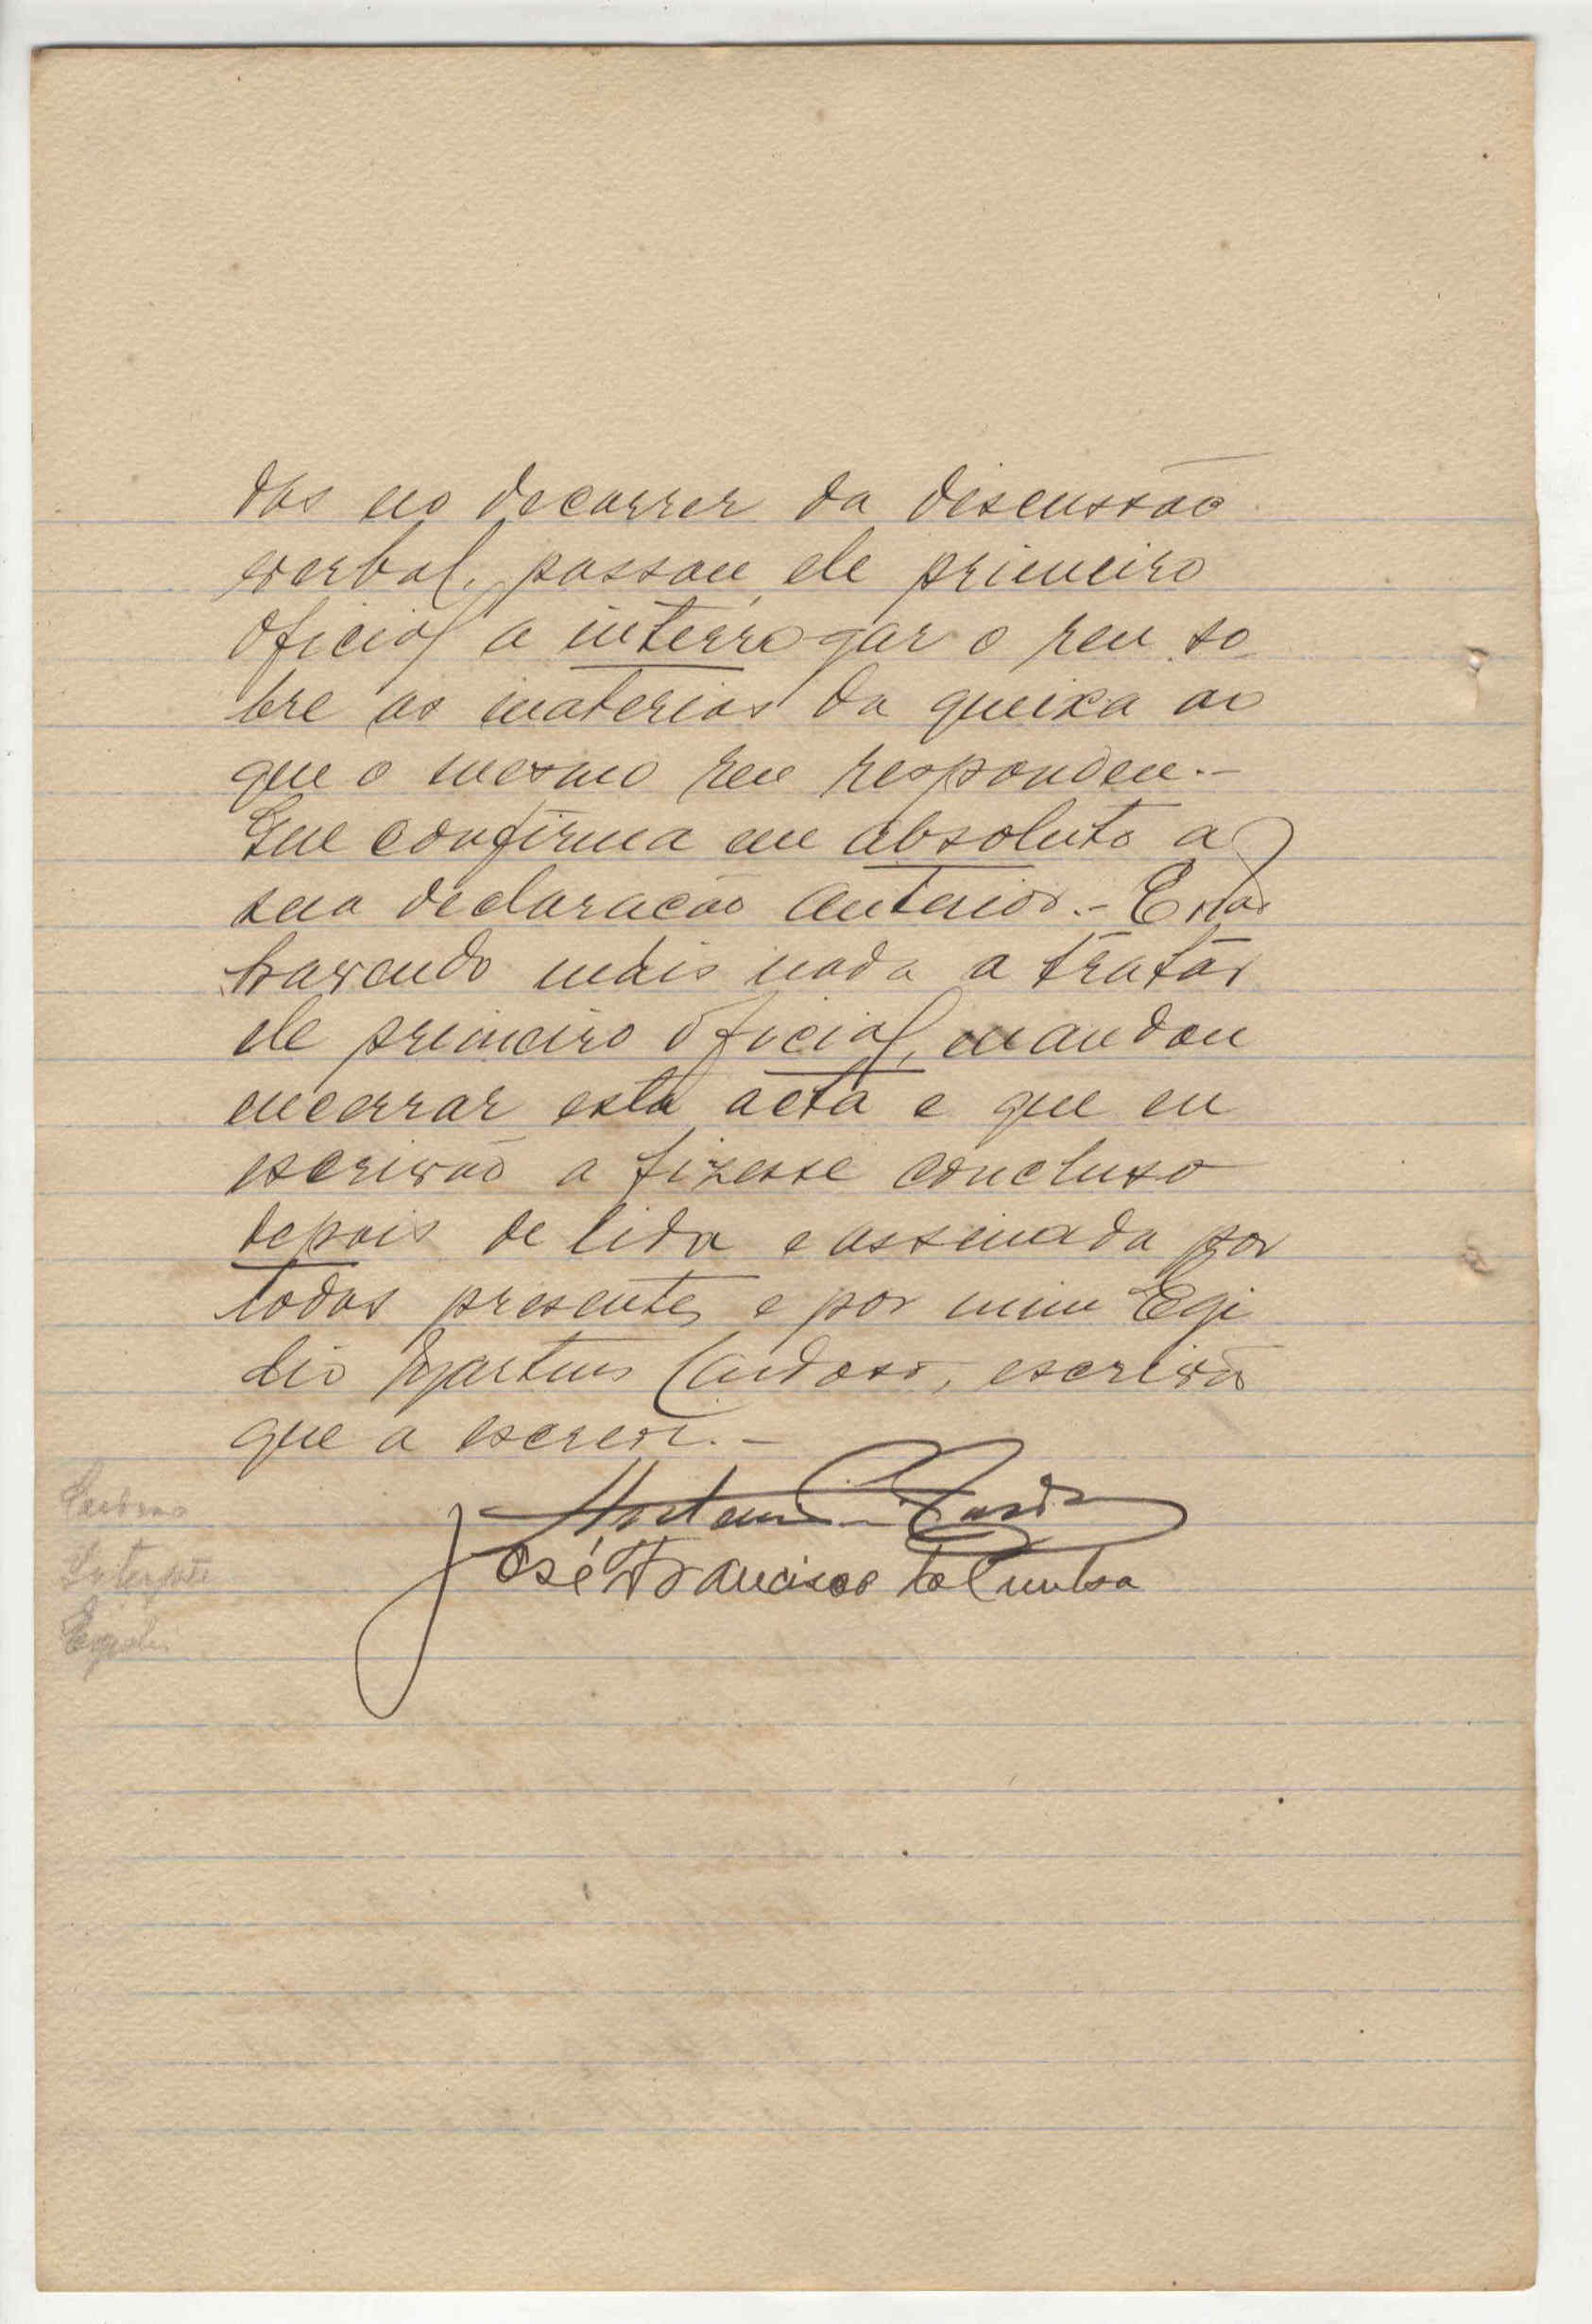 dos no decorrer da discussão
verbal, passou ele primeiro
oficial a interrogar o reu so
bre as materias da queixa ao
que o mesmo reu respondeu.-
Que confirma em absoluto a
sua declaração anterior.- E não
havendo mais nada a tratar
ele primeiro oficial, mandou
encerrar esta acta e que eu
escrivão a fizesse concluso
depois de lida e assinada por
todos presentes e por mim Egi
dio Martins Cardoso, escrivão
que a escrevi.-
José Francisco da Cunha
Interprete